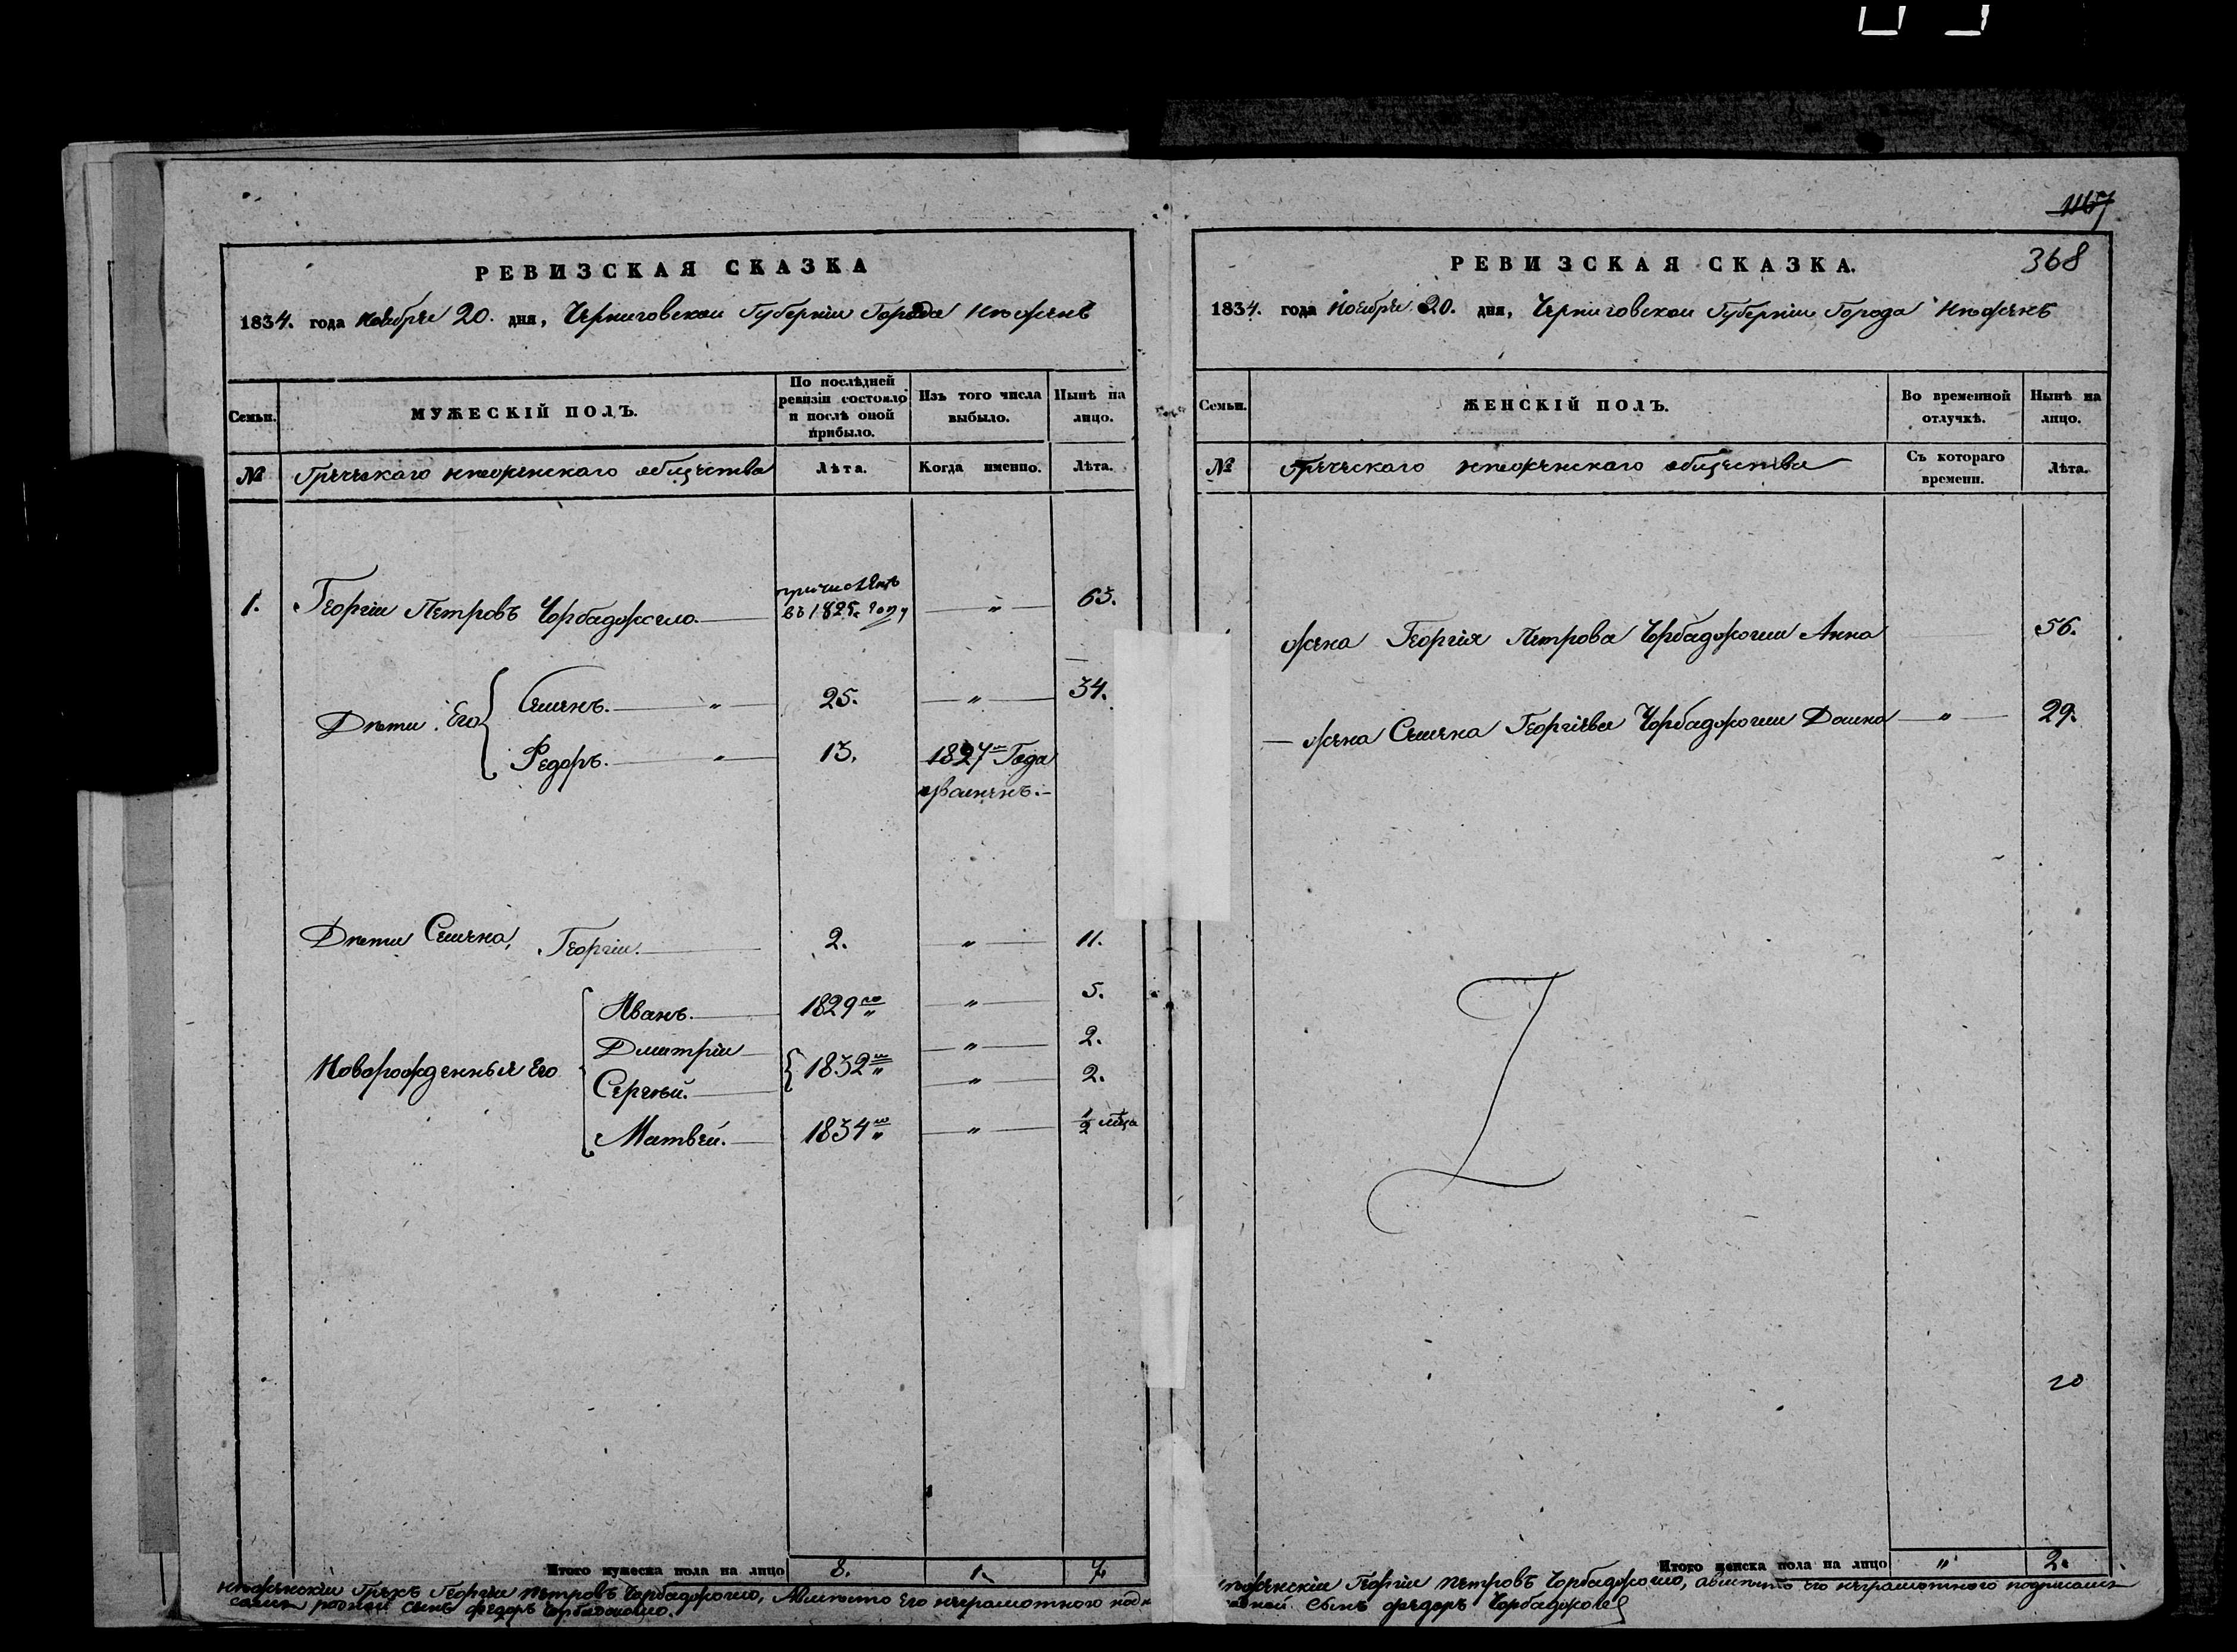 1167
РЕВИЗСКАЯ СКАЗКА
1834. года Ноября 20. дня, Черниговской Губерніи Города Нѣжена
Семьи.
МУЖЕСКІЙ ПОЛЪ.
По послѣдней ревизіи состояло и послѣ оной прибыло.
Изъ того числа выбыло.
Нынѣ на лицо.
№
Греческаго нѣженскаго общества
Лѣта.
Когда именно.
Лѣта.
1.
Георгіи Петровъ Чорбаджогло.
причисленъ въ 1825. году
"
63.
Дѣти Его
Семенъ. "
25.
"
34.
Федоръ. "
13.
1827го Года
Дѣти Семена,
Георгіи.
2.
"
11.
Новорожденныя Его
Иванъ.
1829го "
"
5.
Дмитріи
1832го "
"
2.
Сергѣй.
"
2.
Матвей.
1834го "
"
1/2 мѣца
Итого мужеска пола на лицо
8.
1.
7.
нѣженскіи Грекъ Георгіи Петровъ Чорбаджогло, Авместо Его неграмотного
родной сынъ федоръ Чорбаджогло.
РЕВИЗСКАЯ СКАЗКА.
368
1834. года Ноября 20. дня, Черниговской Губерніи Города Нѣжена
Семьи.
ЖЕНСКІЙ ПОЛЪ.
Во временной отлучкѣ.
Нынѣ на лицо.
№
Греческаго нѣженскаго общества
Съ котораго времени.
Лѣта.
жена Георгія Петрова Чорбаджогли Анна
56.
жена Семена Георгіева Чорбаджогли Домна
"
29.
20
Итого женска пола на лицо
"
2.
нѣженскіи Георгіи Петровъ Чорбаджогло, авместо его неграмотного подписался
родной сынъ федоръ Чорбаджогло